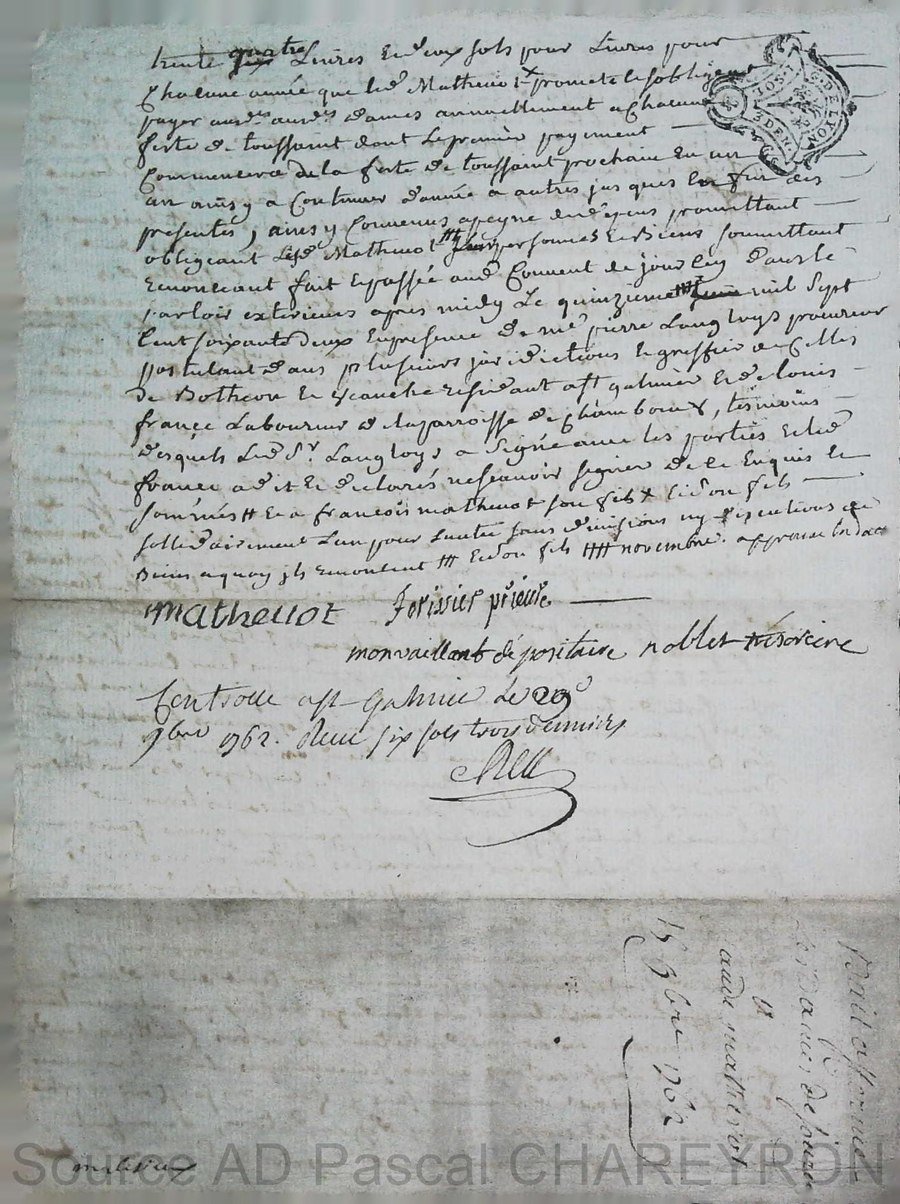 trente quatre Livres Et deux sols pour Livres pour
Chacune année que led Matheuot promet et soblige
payer dames annuellement a Chacune
feste de toussaint dont Le premier payement
Commencera de la feste de toussaint prochain En un
an ainsy a Continuer dannée a autres jusques En fin des
presentes, ainsy Convenus apeyne promettant
obligeant Matheuot personnes Et Biens soumettant
Renonceant fait Et passée aud Couvent de jourcey dans le
parloir exterieur apres midy Le quinzieme mil Sept
Cent soixante deux En presence de me pierre Langloys procureur
postulant dans plusieurs jurisdictions Et greffier de Celles
de Botheon Et residant a st galmier Et de Louis
france Laboureur de la parroisse de Chambœuf, temoins
desquels Led Sr. Langloys a Signé avec les parties Et led
france a dit Et declarés ne scavoir signer de ce Enquis Et
sommés # Et a francois matheuot son fils x Et son fils
sollidairement Lun pour Lautre sans divisions ny discutions de
Biens a quoy jls renoncent ## Et son fils #### novembre. approuvé
matheuot ferissier prieure
monvaillant dépositaire noblet trésoriere
Controlle a st Galmier Le 29e
9bre 1762. Reçu six sols trois deniers
10S.1
3DEN.
G. DE LYON
dames de jourcey
a
aude matheuot
15 9bre 1762
Source AD Pascal CHAREYRON